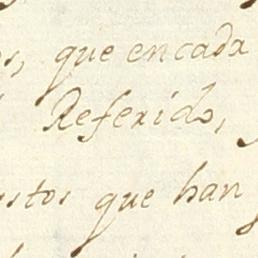 s, que encada
Referido,
stos que han